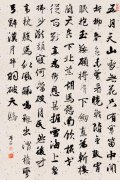 五月天山雪無花只有寒笛中聞
折柳春色未曾看曉戰隨金鼓宵
眠抱玉鞍願將腰下劍直為斬樓
蘭天兵下北荒胡馬欲南飲橫戈
從百戰直為銜恩甚握雪海上餐拂
沙隴頭寢何當破月氏然後方高
枕駿馬似風飆鳴鞭出渭橋彎
弓辭漢月插羽破天驕